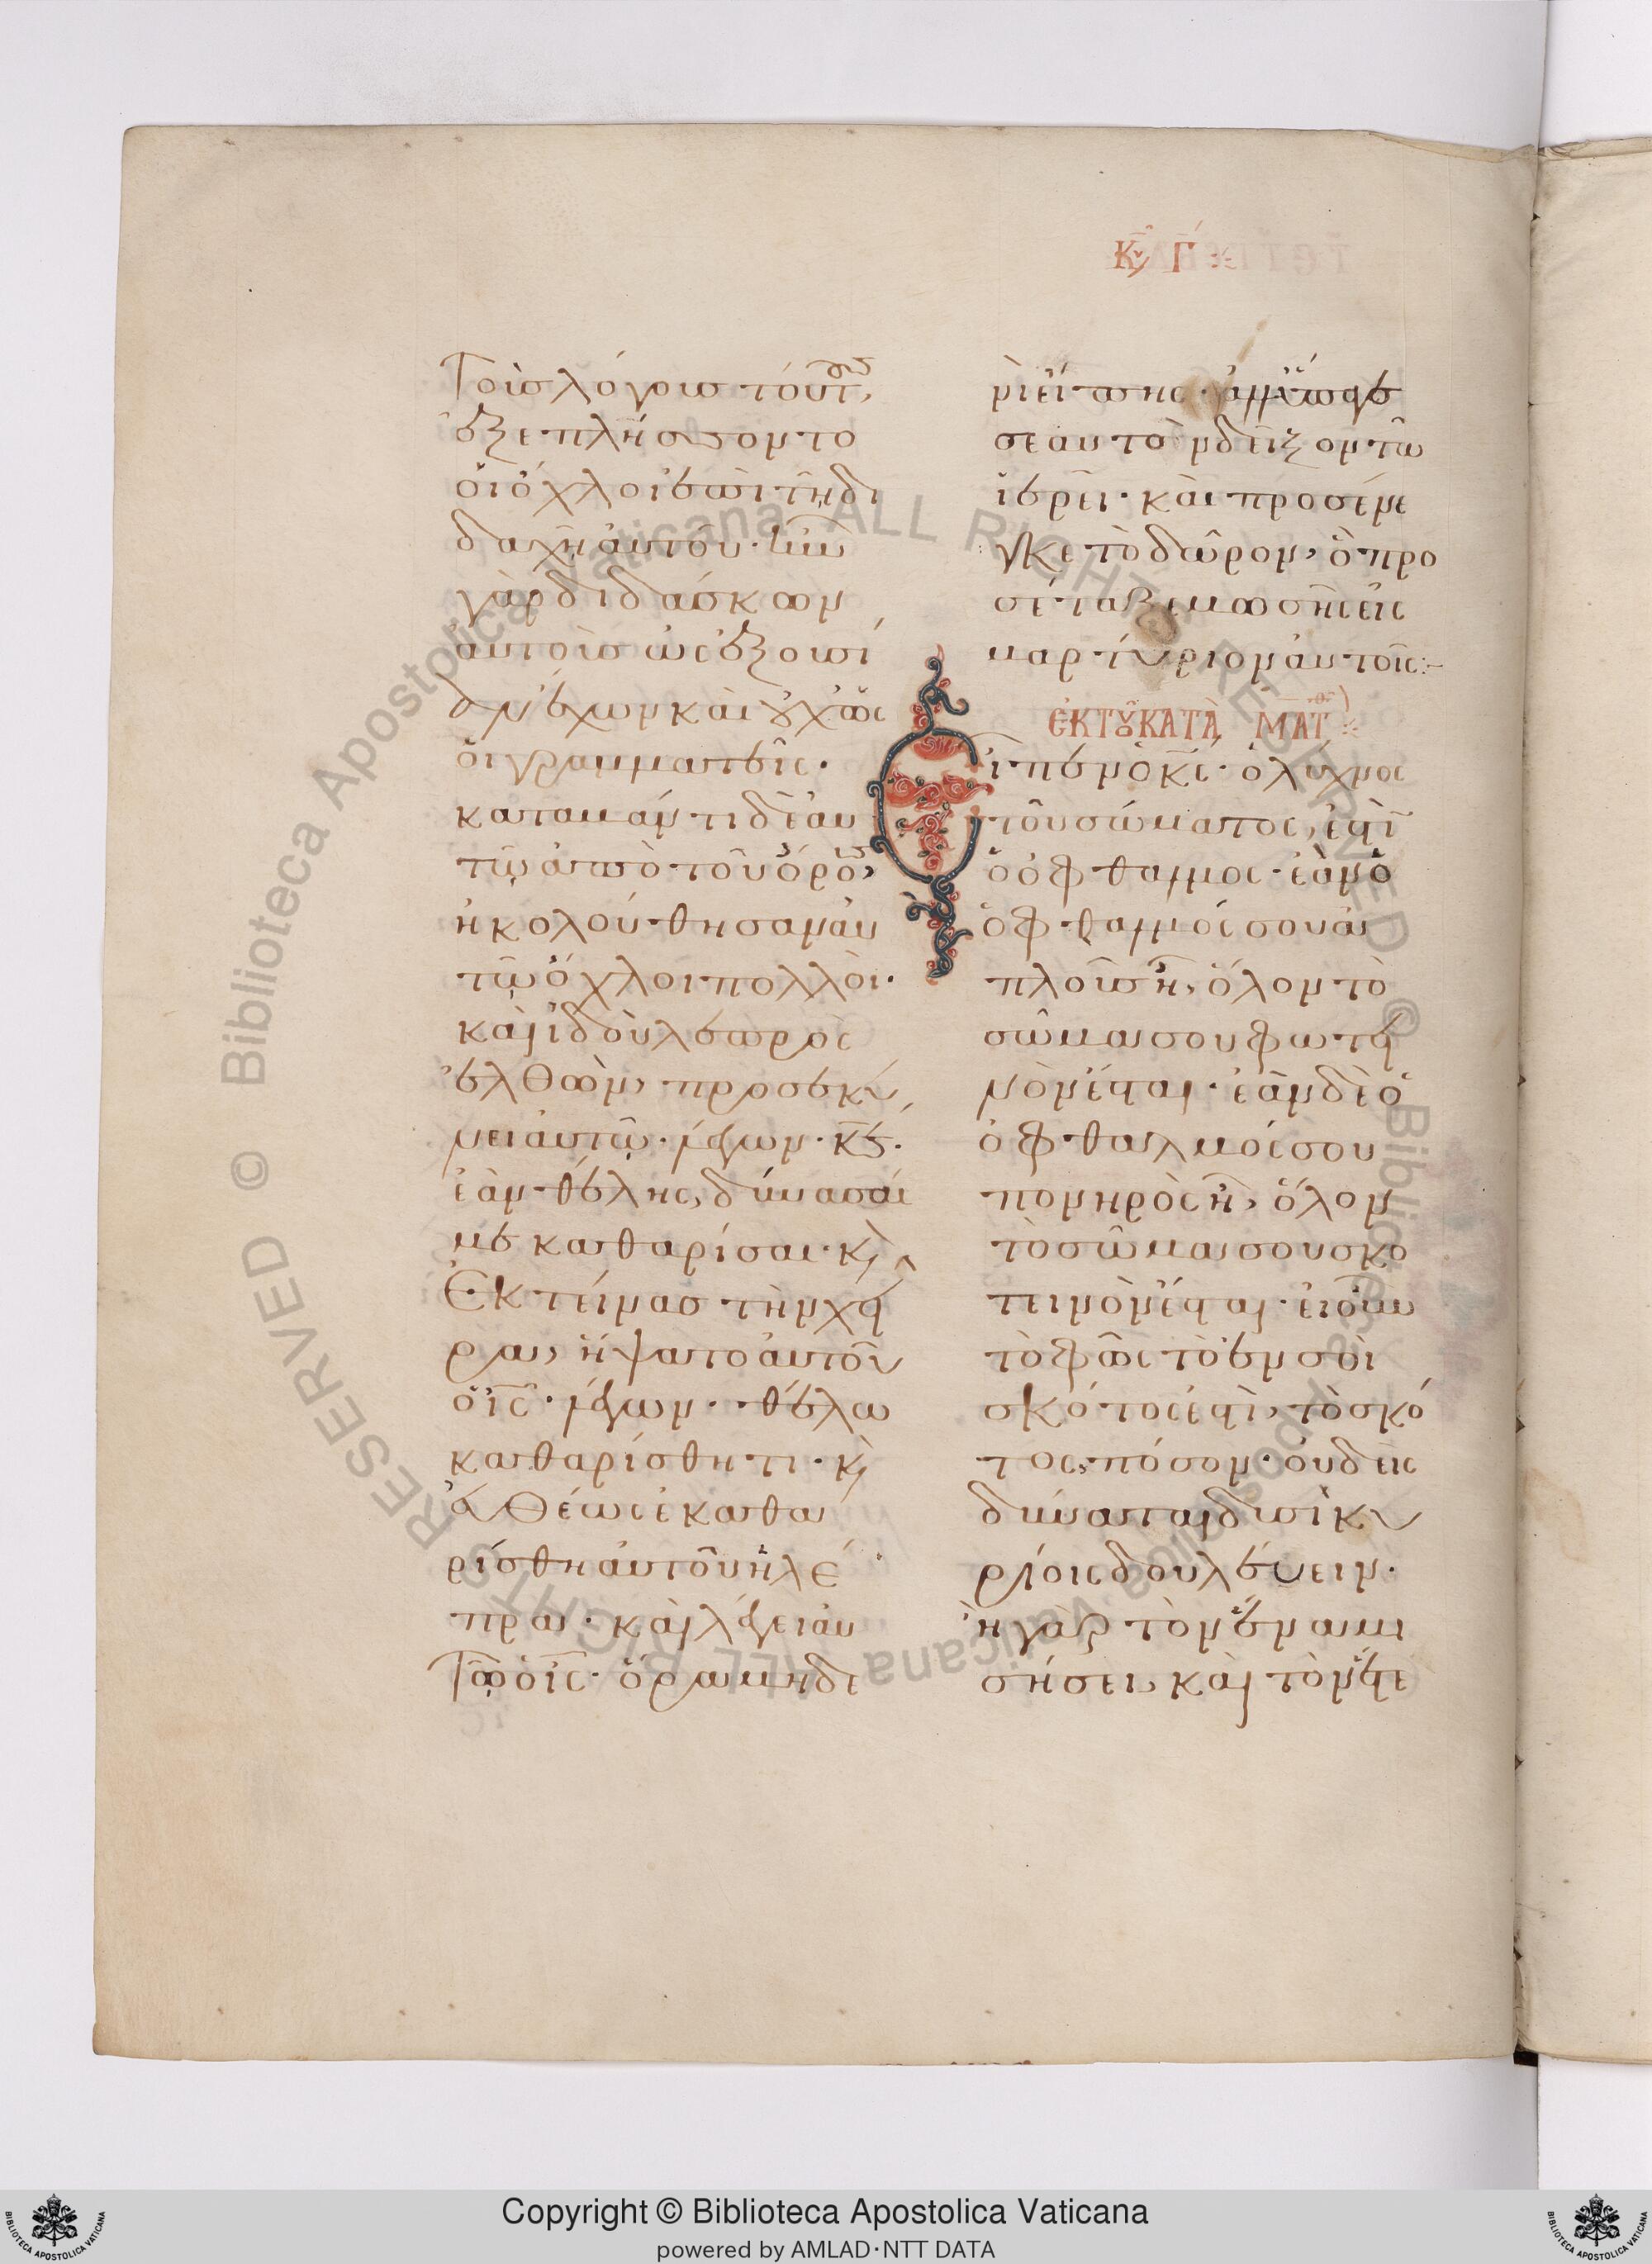 Κυ Γ
τοὺς λόγους τούτους,
ἐξεπλήσσοντο
οἱ ὄχλοι ἐπὶ τῆ δι
δαχῆ αὐτοῦ· ἦν
γὰρ διδάσκων
αὐτοὺς ὡς ἐξουσί
αν ἔχων καὶ οὐχ ὡς
οἱ γραμματεῖς·
καταβάντι δὲ αὐ
τῷ ἀπὸ τοῦ ὄρους,
ἠκολούθησαν αὐ
τῷ ὄχλοι πολλοὶ·
καὶ ἰδοὺ λεπρὸς
ἐλθὼν, προσεκύ
νει αὐτῷ· λέγων· κε·
ἐὰν θέλης, δύνασαί
με καθαρίσαι· κ(αὶ)
ἐκτείνας τὴν χεῖ
ρα, ἥψατο αὐτοῦ
ὁ ις· λέγων· θέλω
καθαρίσθητι· κ(αὶ)
εὐθέως ἐκαθα
ρίσθη αὐτοῦ ἡ λέ
πρα· καὶ λέγει αὐ
τῷ ὁ ις· ὅρα μηδε
νὶ εἴπης· ἀλλ' ὕπαγε
σεαυτὸν δεῖξον τῶ
ἱερεῖ· καὶ προσένε
γκε τὸ δῶρον, ὃ προ
σέταξε μωσῆς εἰς
μαρτύριον αὐτοῖς:
ἐΚ ΤΟῦ ΚΑΤᾺ ΜΑΤΘ
Εἶπεν ὁ κς· ὁ λύχνος
τοῦ σώματος, ἐστὶν
ὁ ὀφθαλμος· ἐὰν ὁ
ὀφθαλμός σου ἁ
πλοῦς ῆ, ὅλον τὸ
σῶμα σου φωτει
νὸν ἔσται· ἐὰν δὲ ὁ
ὀφθαλμός σου
πονηρὸς ῆ, ὅλον
τὸ σῶμα σου σκο
τεινὸν ἔσται· εἰ οὖν
τὸ φῶς τὸ ἐν σοὶ
σκότος ἐστὶ, τὸ σκό
τος, πόσον· οὐδεὶς
δύναται δυσὶ κυ
ρίοις δουλεύειν·
ἢ γὰρ τὸν ἕνα μι
σήσει, καὶ τὸν ἕτε
Copyright © Biblioteca Apostolica Vaticana
powered by AMLAD·NTT DATA